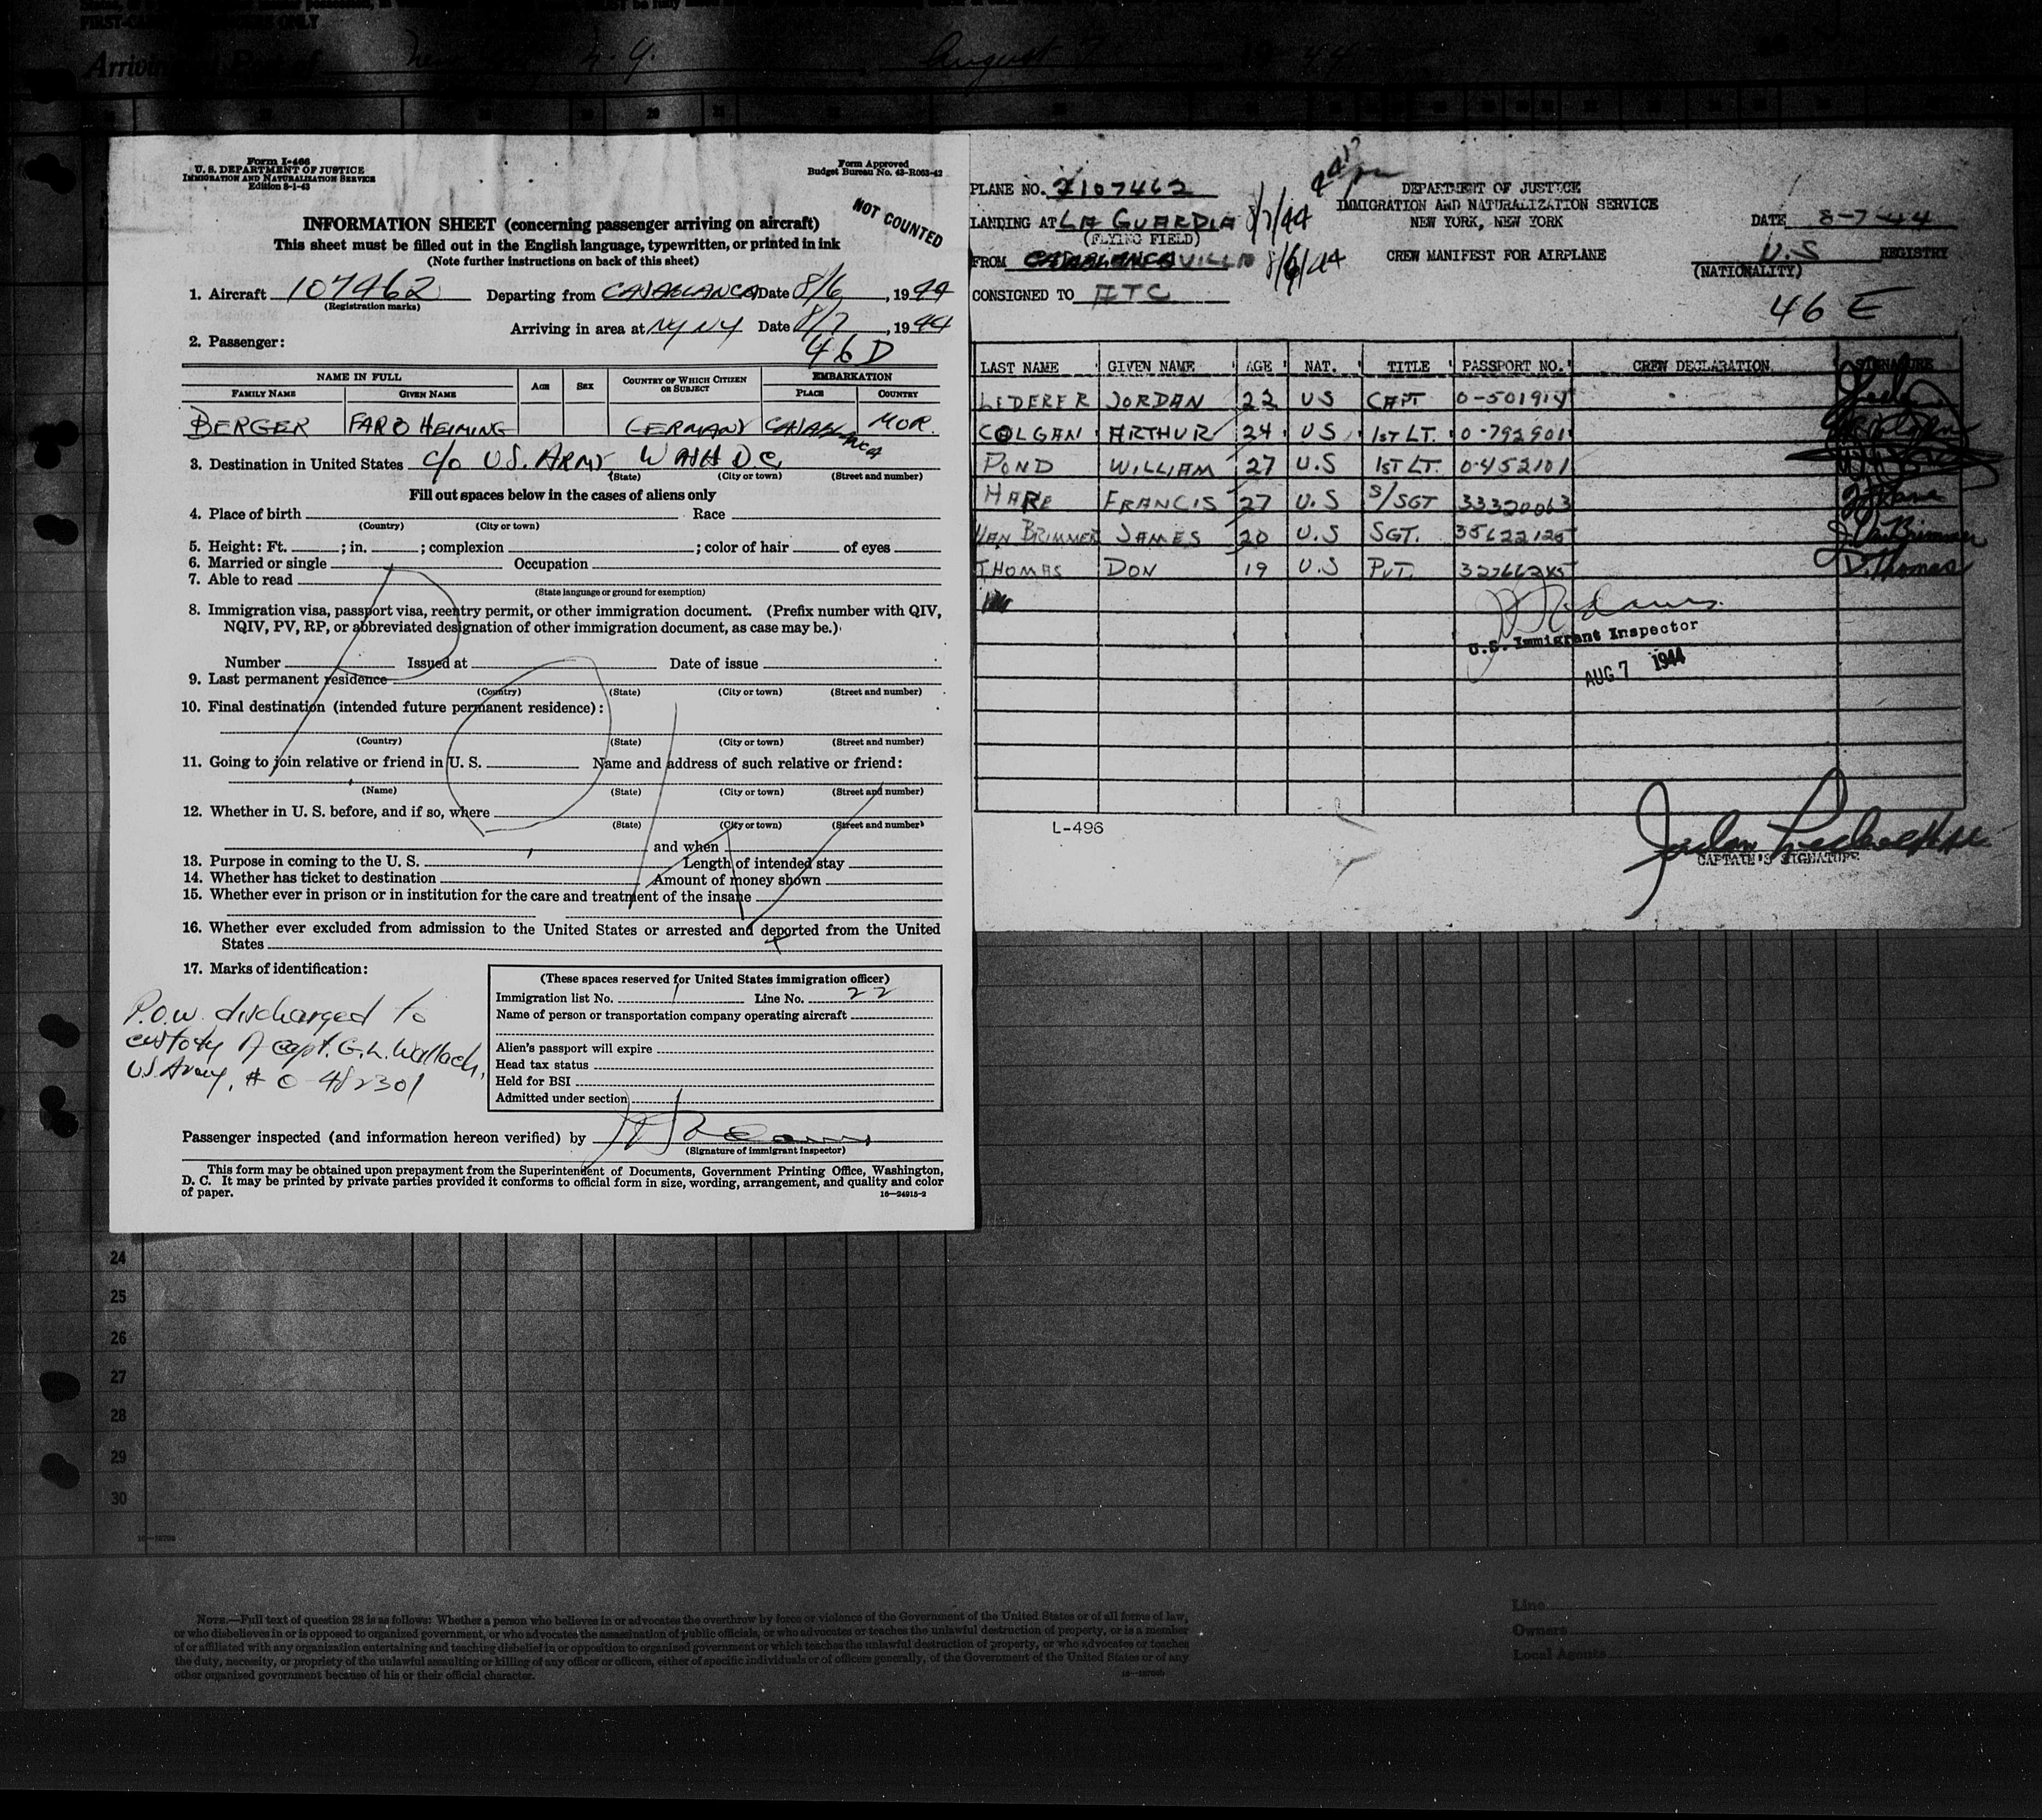 FIRST-CABIN PASSENGERS ONLY
Arriving at Port of New York, N.Y. August 7
Form I-466
U. S. DEPARTMENT OF JUSTICE
IMMIGRATION AND NATURALIZATION SERVICE
Edition 8-1-43
Form Approved
Budget Bureau No. 43-R063-42
NOT COUNTED
INFORMATION SHEET (concerning passenger arriving on aircraft)
This sheet must be filled out in the English language, typewritten, or printed in ink
(Note further instructions on back of this sheet)
1. Aircraft 107462 Departing from CASABLANCA Date 8/6, 1944
(Registration marks)
Arriving in area at NY NY Date 8/7, 1944
2. Passenger:
46 D
NAME IN FULL AGE SEX COUNTRY OF WHICH CITIZEN OR SUBJECT EMBARKATION
FAMILY NAME GIVEN NAME PLACE COUNTRY
BERGER FARO HEIMING GERMANY CASABLANCA MOR.
3. Destination in United States c/o U.S. ARMY, WASH D.C.
(State) (City or town) (Street and number)
Fill out spaces below in the cases of aliens only
4. Place of birth Race
(Country) (City or town)
5. Height: Ft. ; in. ; complexion ; color of hair of eyes
6. Married or single Occupation
7. Able to read
(State language or ground for exemption)
8. Immigration visa, passport visa, reentry permit, or other immigration document. (Prefix number with QIV,
NQIV, PV, RP, or abbreviated designation of other immigration document, as case may be.)
Number Issued at Date of issue
9. Last permanent residence
(Country) (State) (City or town) (Street and number)
10. Final destination (intended future permanent residence):
(Country) (State) (City or town) (Street and number)
11. Going to join relative or friend in U. S. Name and address of such relative or friend:
(Name) (State) (City or town) (Street and number)
12. Whether in U. S. before, and if so, where
(State) (City or town) (Street and number)
and when
13. Purpose in coming to the U. S. Length of intended stay
14. Whether has ticket to destination Amount of money shown
15. Whether ever in prison or in institution for the care and treatment of the insane
16. Whether ever excluded from admission to the United States or arrested and deported from the United
States
17. Marks of identification:
P.O.W. discharged to
custody of Capt. G. L. Wallach,
U.S. Army, # O-482301
(These spaces reserved for United States immigration officer)
Immigration list No. 1 Line No. 22
Name of person or transportation company operating aircraft
Alien's passport will expire
Head tax status
Held for BSI
Admitted under section
Passenger inspected (and information hereon verified) by
(Signature of immigrant inspector)
This form may be obtained upon prepayment from the Superintendent of Documents, Government Printing Office, Washington,
D. C. It may be printed by private parties provided it conforms to official form in size, wording, arrangement, and quality and color
of paper.
16—24915-2
PLANE NO. 2107462
LANDING AT LA GUARDIA 8/7/44
(FLYING FIELD)
FROM 8/6/44
CONSIGNED TO ATC
DEPARTMENT OF JUSTICE
IMMIGRATION AND NATURALIZATION SERVICE
NEW YORK, NEW YORK
CREW MANIFEST FOR AIRPLANE
DATE 8-7-44
U.S REGISTRY
(NATIONALITY)
46 E
LAST NAME GIVEN NAME AGE NAT. TITLE PASSPORT NO. CREW DECLARATION SIGNATURE
LEDERER JORDAN 22 US CAPT O-501914
COLGAN ARTHUR 24 US 1ST LT. O-792901
POND WILLIAM 27 U.S 1ST LT. O-452101
HARE FRANCIS 27 U.S S/SGT 33320063
VAN BRIMMER JAMES 20 U.S SGT. 35622125 J. Van Brimmer
THOMAS DON 19 U.S PVT. 32766245 D. Thomas
U.S. Immigrant Inspector
AUG 7 1944
L-496
CAPTAIN'S SIGNATURE
24
25
26
27
28
29
30
NOTE.—Full text of question 28 is as follows: Whether a person who believes in or advocates the overthrow by force or violence of the Government of the United States or of all forms of law,
or who disbelieves in or is opposed to organized government, or who advocates the assassination of public officials, or who advocates or teaches the unlawful destruction of property, or is a member
of or affiliated with any organization entertaining and teaching disbelief in or opposition to organized government or which teaches the unlawful destruction of property, or who advocates or teaches
the duty, necessity, or propriety of the unlawful assaulting or killing of any officer or officers, either of specific individuals or of officers generally, of the Government of the United States or of any
other organized government because of his or their official character.
Line
Owners
Local Agents